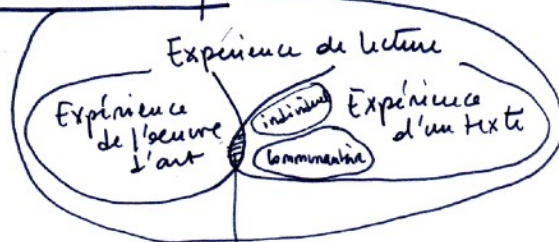 Expérience de lecture
Expérience
de l'œuvre
d'art
individu
communautaire
Expérience
d'un texte